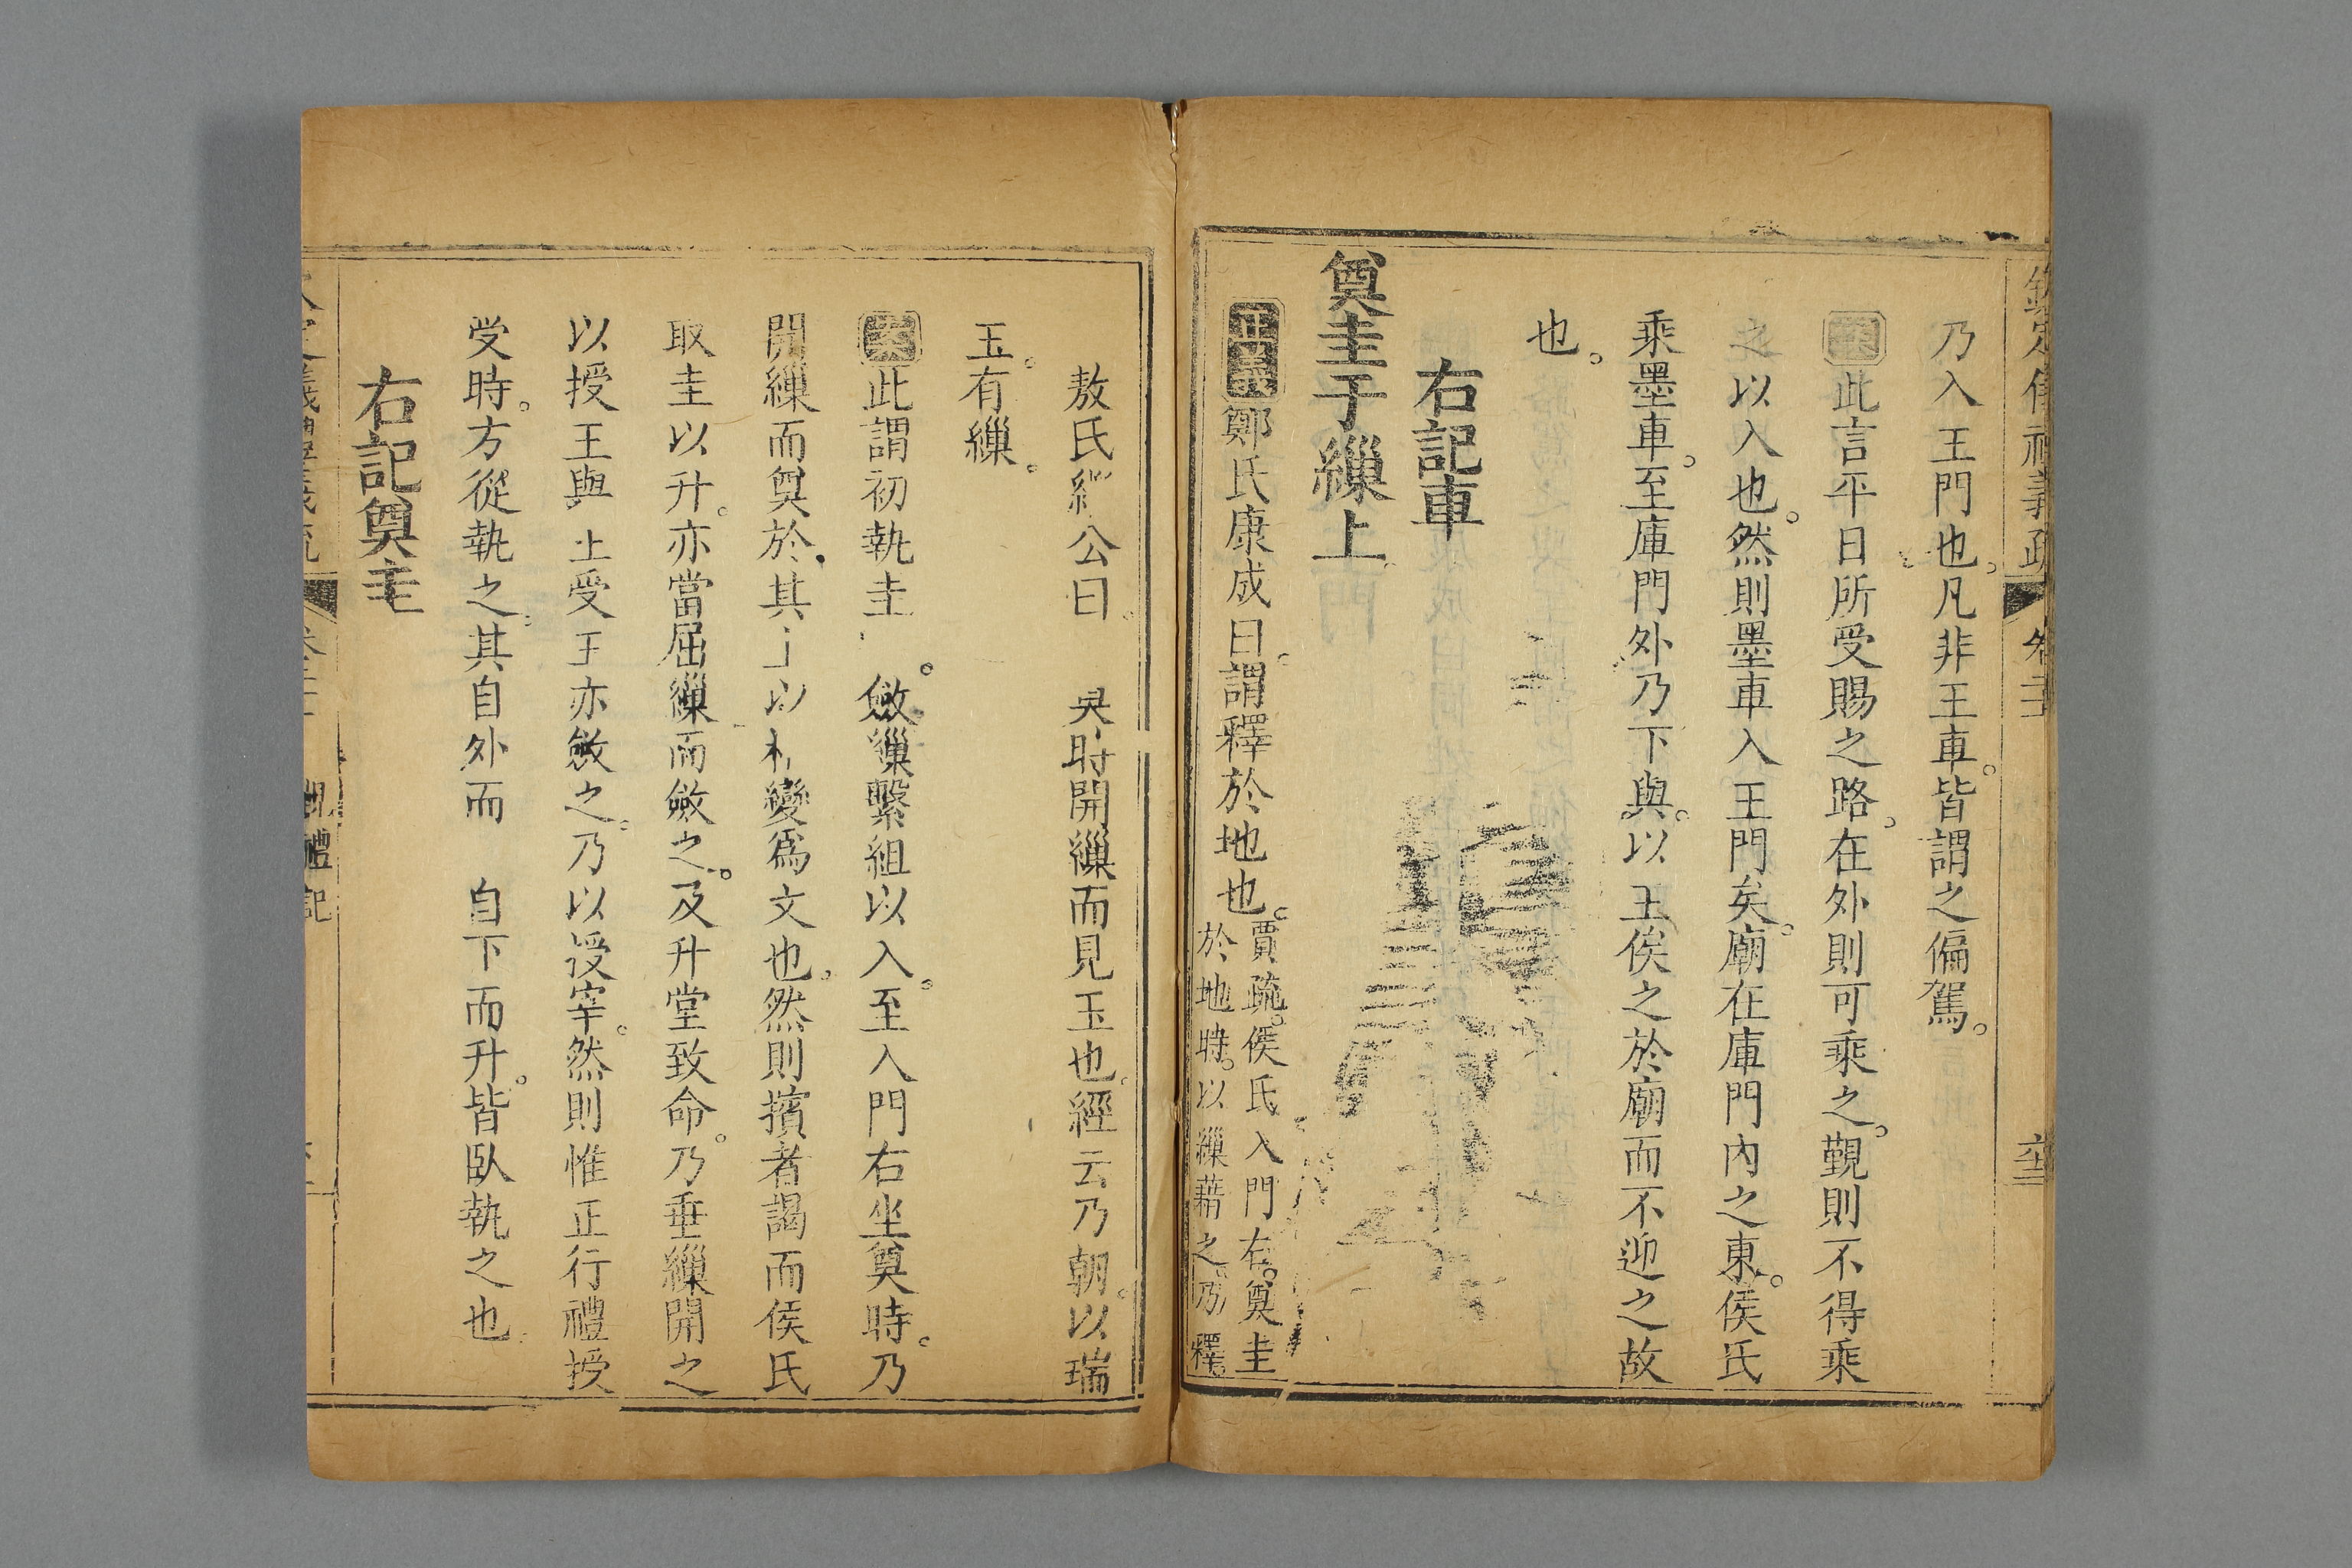 欽定儀禮義疏 卷二十 空三
乃入王門也凡非王車皆謂之偏駕
案此言平日所受賜之路在外則可乘之覲則不得乘
之以入也然則墨車入王門矣廟在庫門內之東侯氏
乘墨車至庫門外乃下與以王侯之於廟而不迎之故
也
右記車
奠圭于繅上
正義鄭氏康成曰謂釋於地也賈疏侯氏入門右奠圭
於地時以繅藉之乃釋
敖氏繼公曰 奠時開繅而見玉也經云乃朝以瑞
玉有繅
案此謂初執圭 斂繅繫組以入至入門右坐奠時乃
開繅而奠於其 以 變爲文也然則擯者謁而侯氏
取圭以升亦當屈繅而斂之及升堂致命乃垂繅開之
以授王與 受 亦斂之乃以授宰然則惟正行禮授
受時方從執之其自外而 自下而升皆臥執之也
右記奠圭
禮記